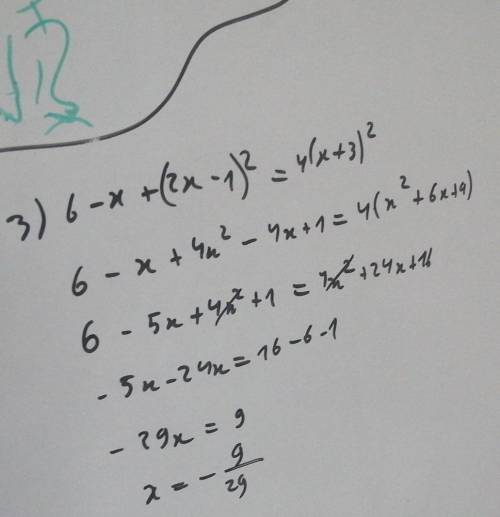 3) 6 - x + (2x - 1)² = 4(x + 3)²
6 - x + 4x² - 4x + 1 = 4(x² + 6x + 9)
6 - 5x + 4x² + 1 = 4x² + 24x + 16
- 5x - 24x = 16 - 6 - 1
- 29x = 9
x = - 9/29